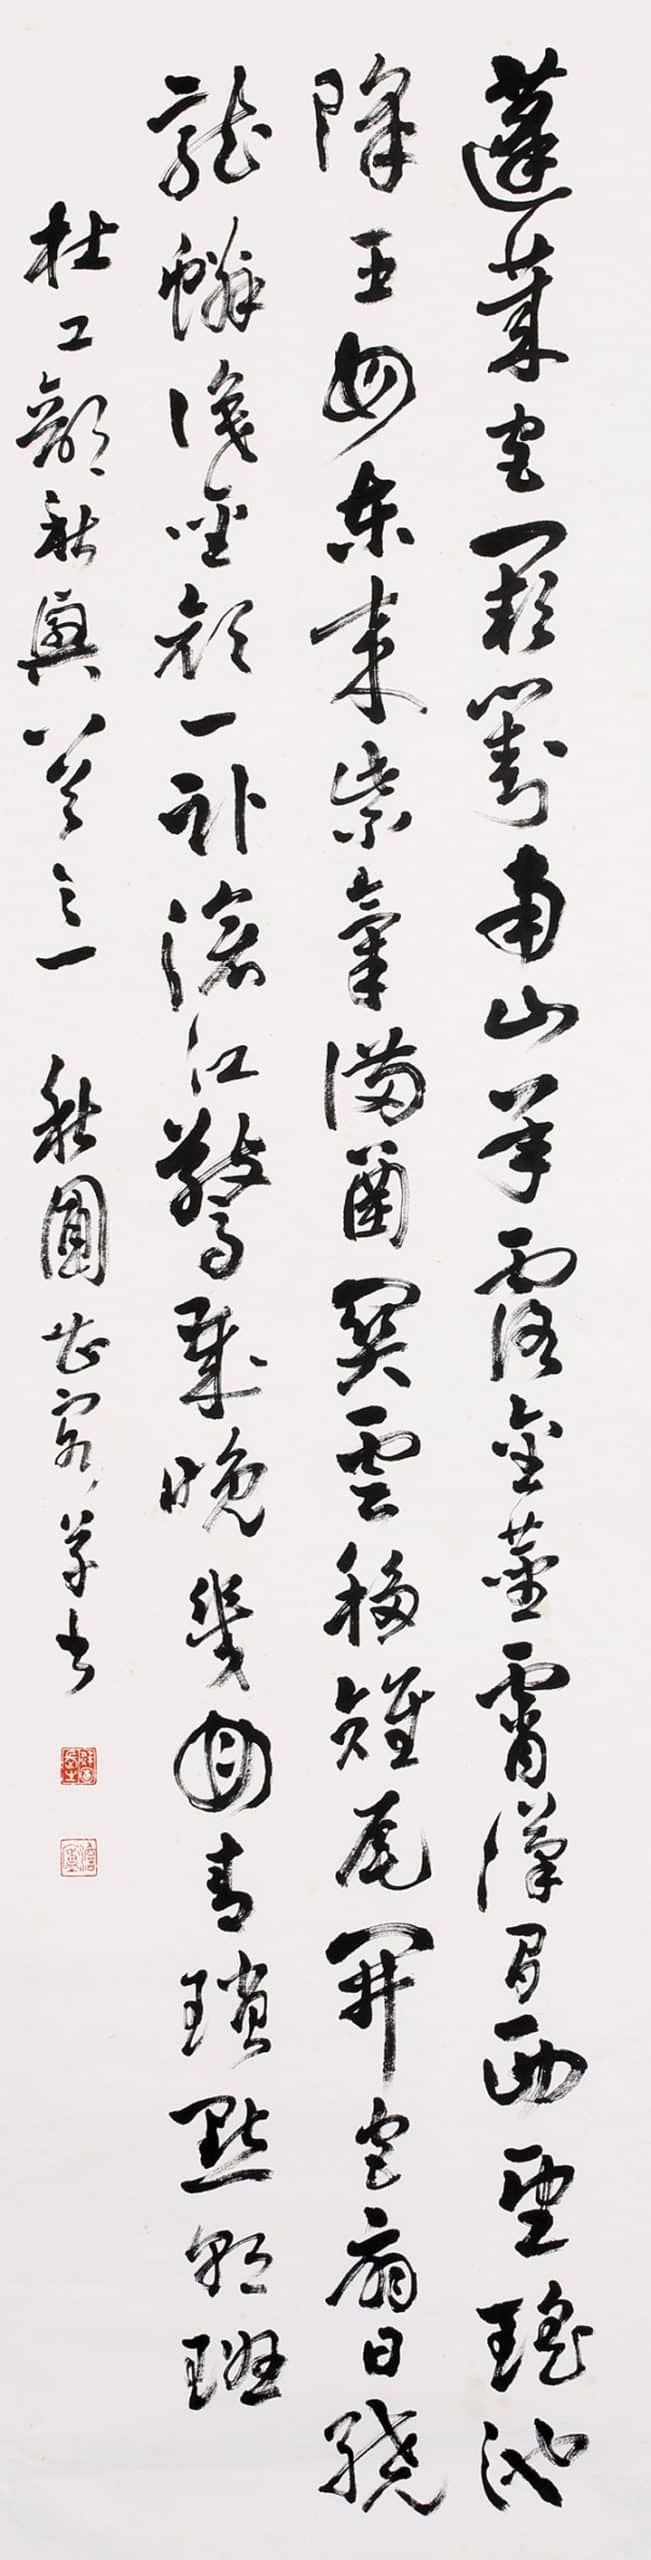 蓬萊宮闕對南山承露金莖霄漢間西望瑤池
降王母東來紫氣滿函關雲移雉尾開宮扇日繞
龍鱗識聖顏一臥滄江驚歲晚幾回青瑣點朝班
杜工部秋興八首之一 秋